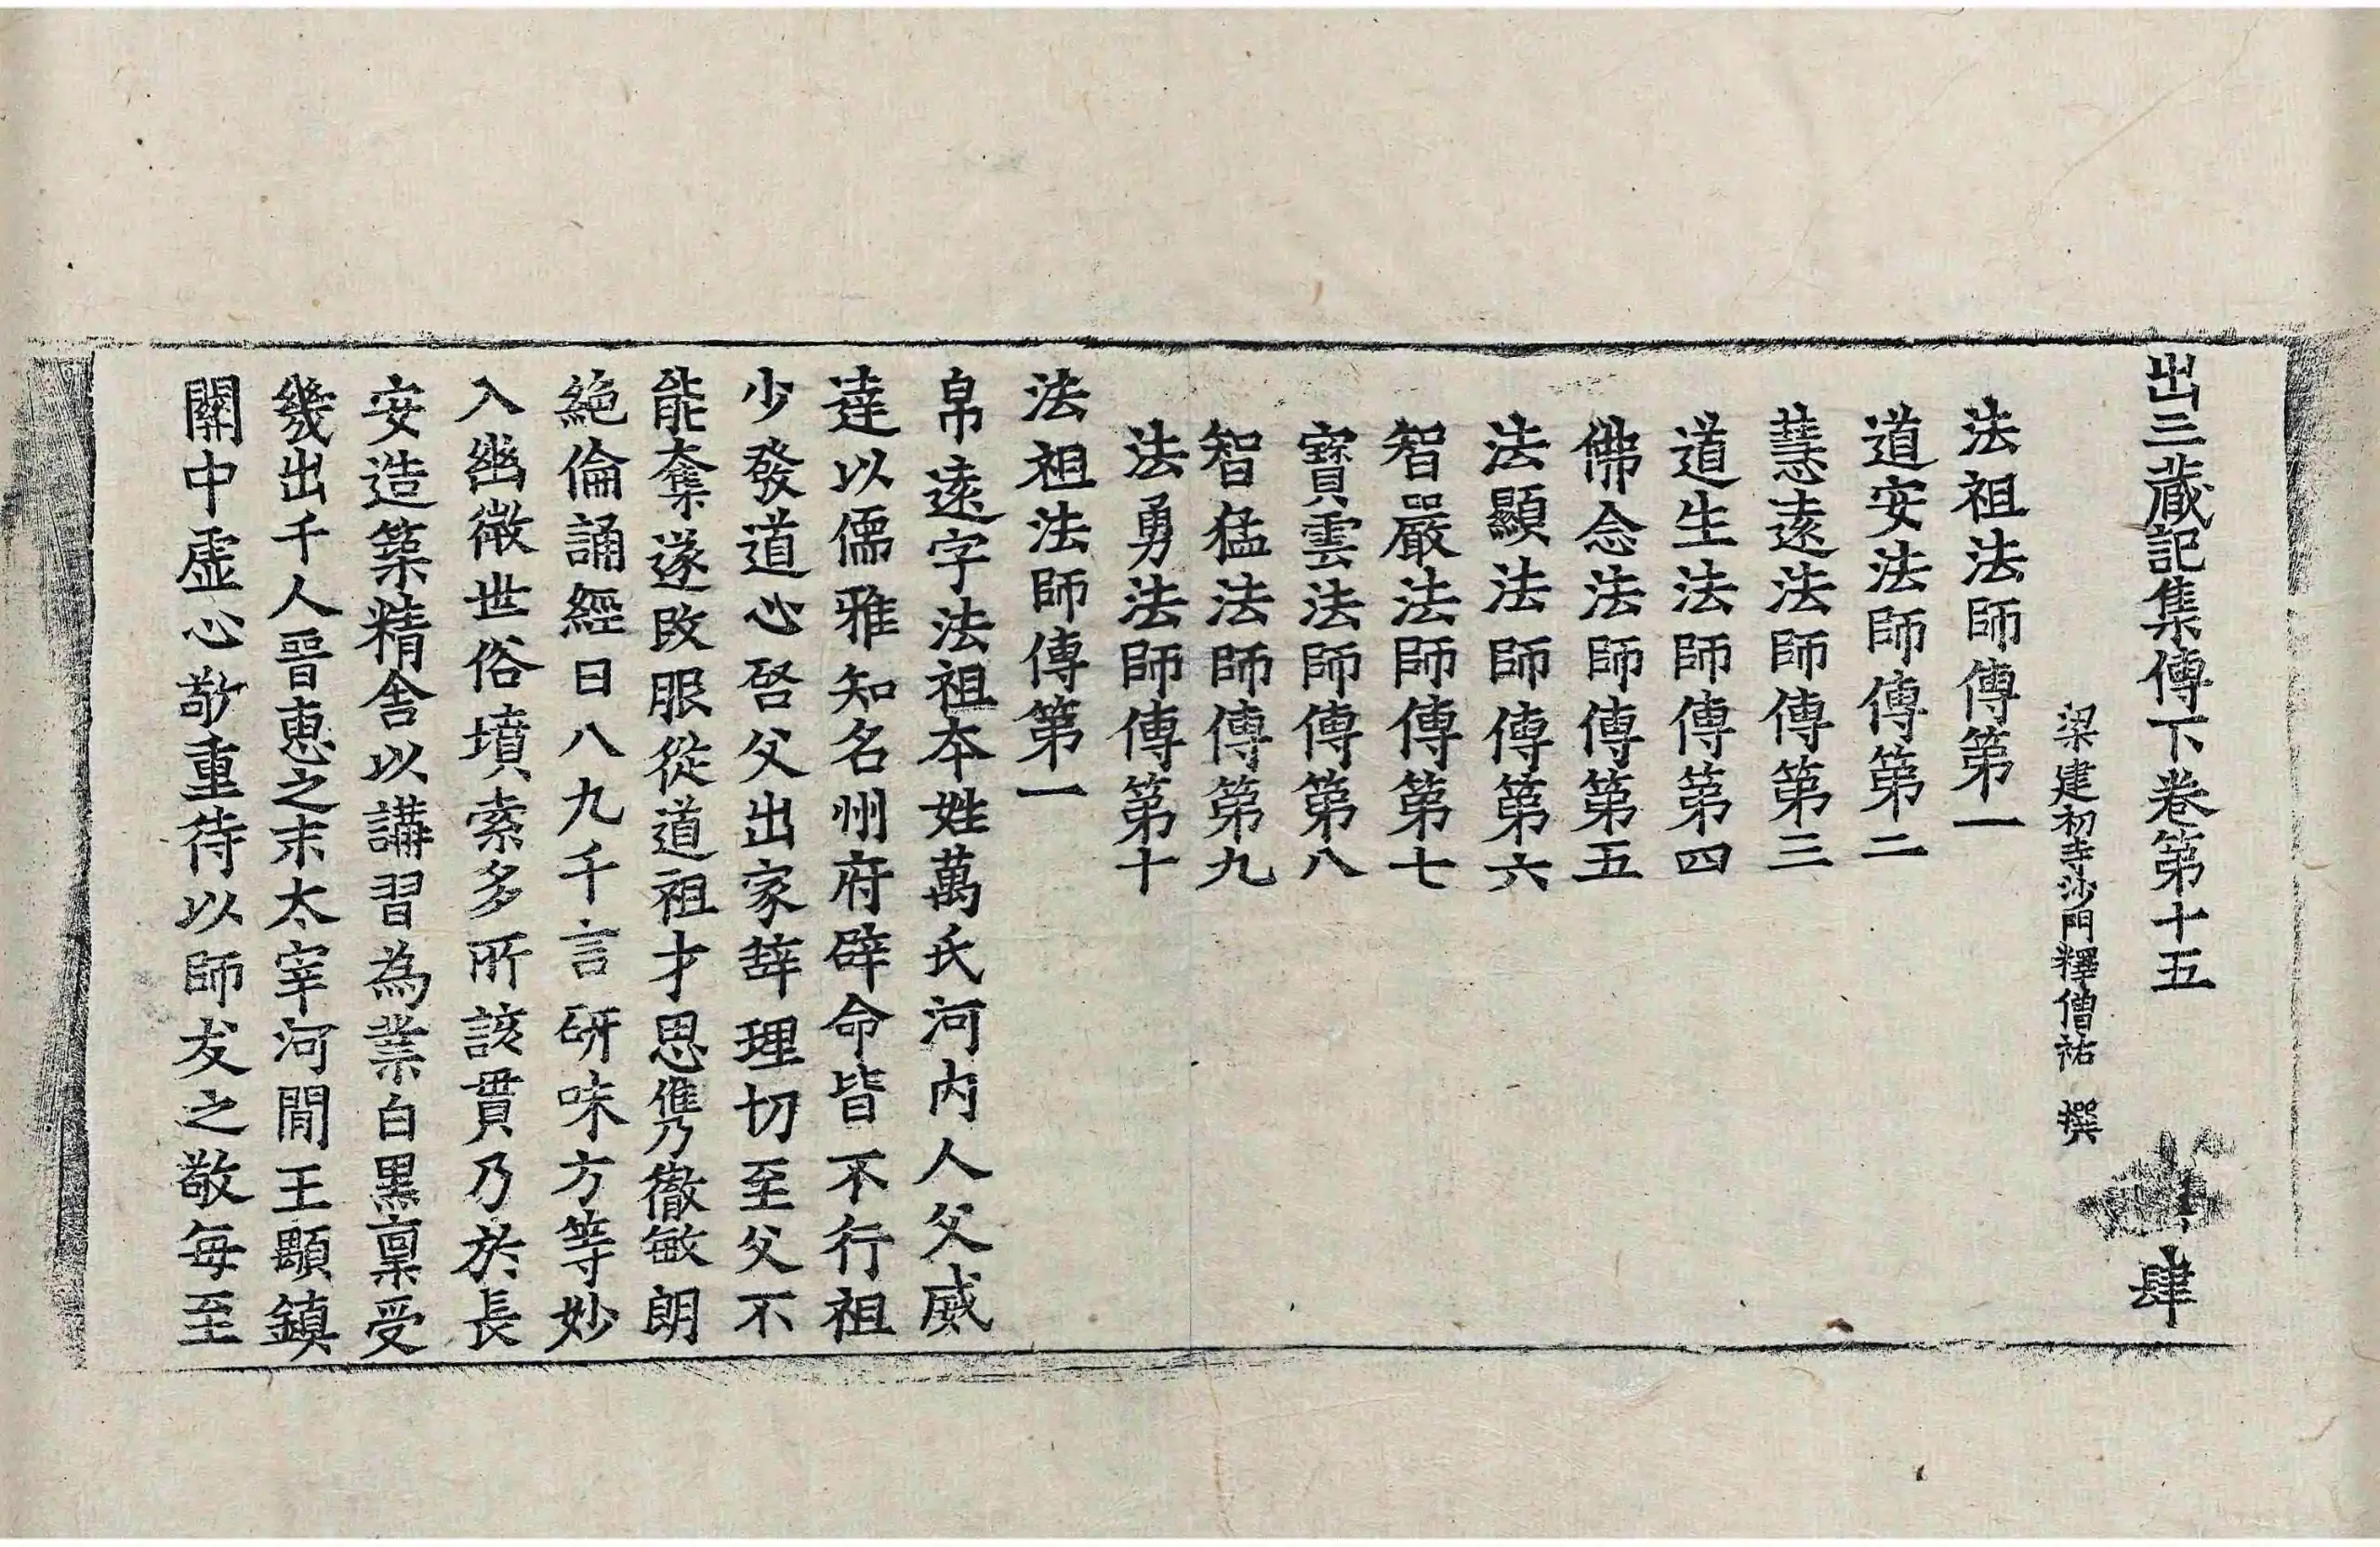 出三蔵記集傳下卷第十五 肆
梁建初寺沙門釋僧祐 撰
法祖法師傳第一
道安法師傳第二
慧遠法師傳第三
道生法師傳第四
佛念法師傳第五
法顯法師傳第六
智嚴法師傳第七
寶雲法師傳第八
智猛法師傳第九
法勇法師傳第十
法祖法師傳第一
帛遠字法祖夲姓萬氏河內人父威
達以儒雅知名州府辟命皆不行祖
少發道心啓父出家辝理切至父不
能奪遂改服從道祖才思儁徹敏朗
絶倫誦經日八九千言研味方等妙
入幽微世俗墳索多所該貫乃於長
安造築精舎以講習為業白黒禀受
幾出千人晉惠之末太宰河閒王顒鎮
關中虛心敬重待以師友之敬每至